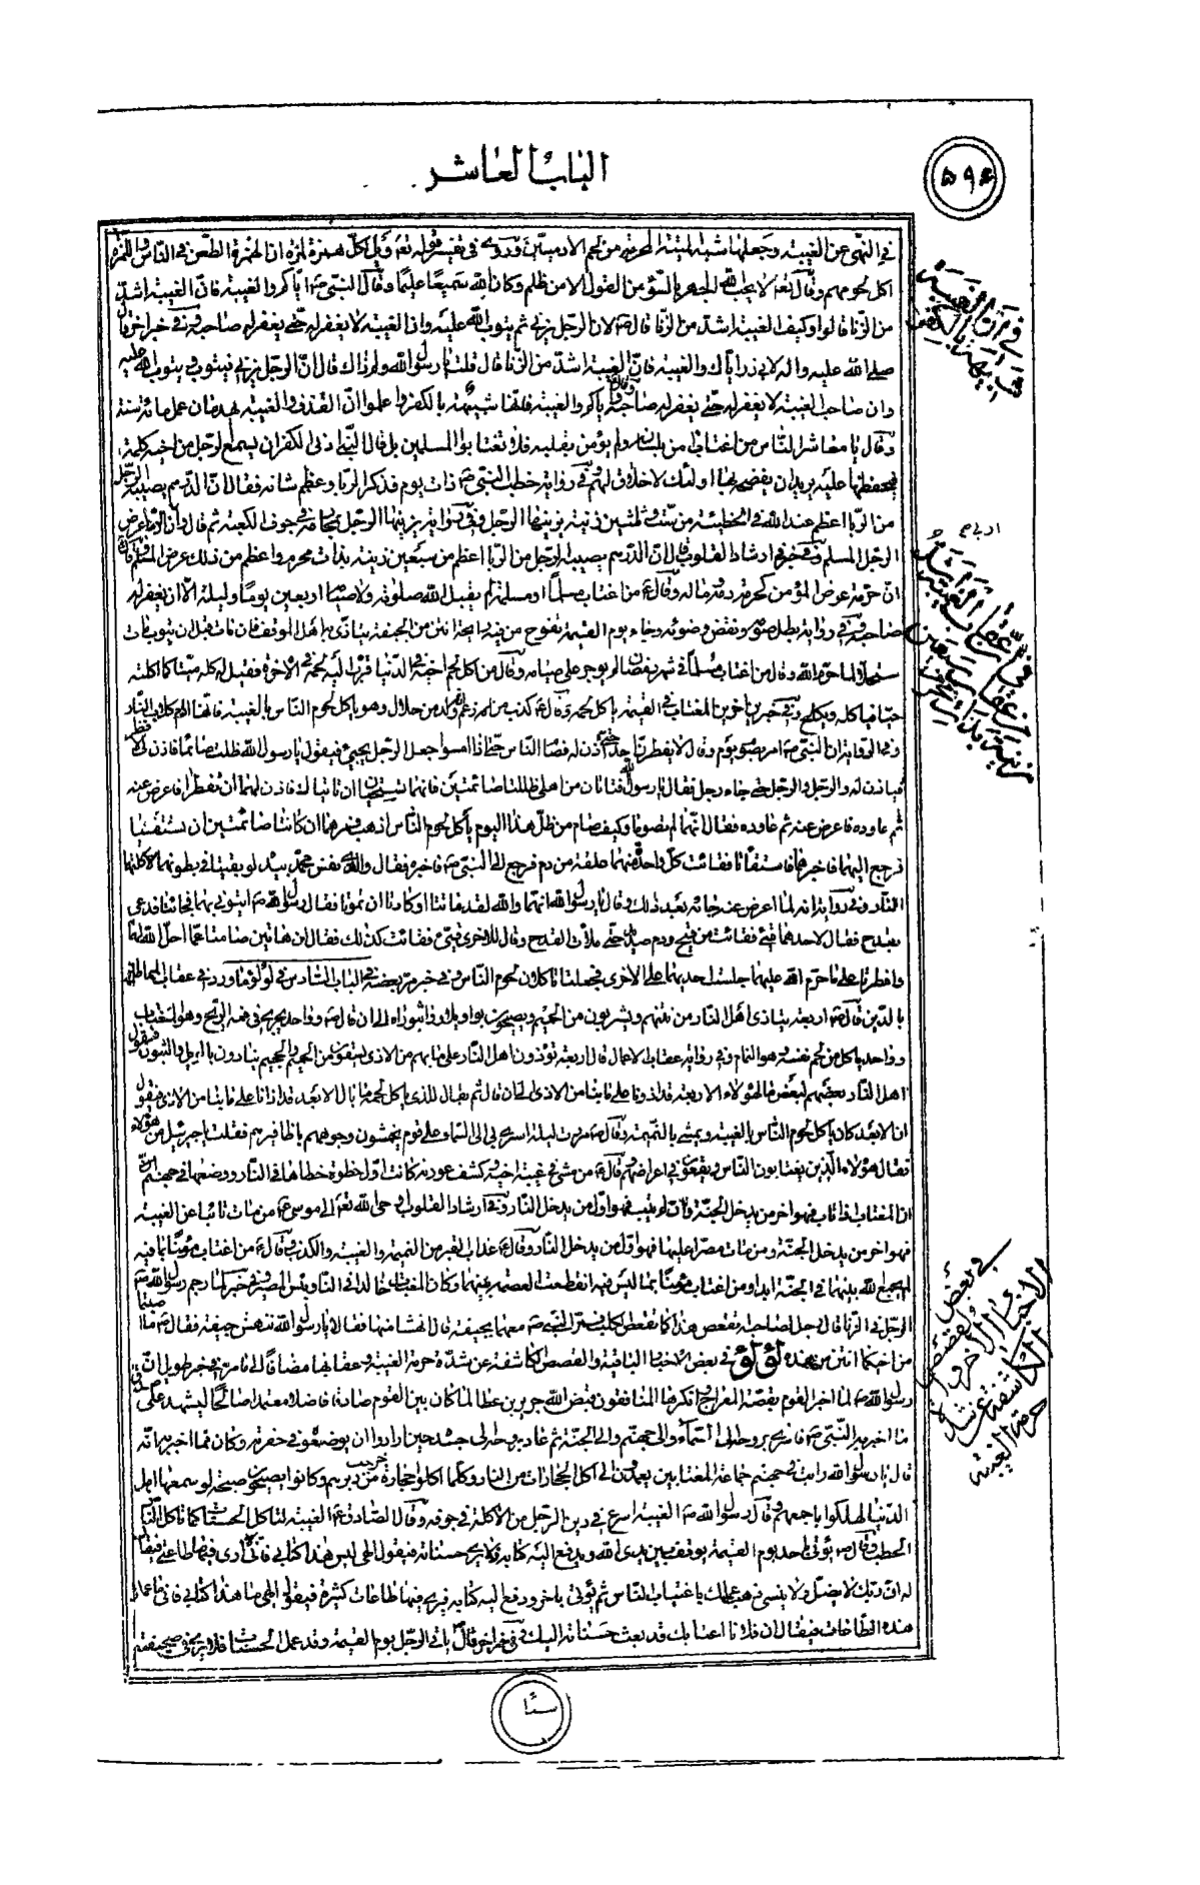 ۵۹۴
الباب العاشر
في النهى عن الغيبة وجعلها شبه الميتة من لحم الادميين في تفسير قوله تعالى ويل لكل همزة لمزة ان الهمزة الطعن في الناس واللمزة
اكل لحومهم وقال تعالى لا يحب الله الجهر بالسوء من القول الا من ظلم وكان الله سميعا عليما وقال النبي ص اياكم والغيبة فان الغيبة اشد
من الزنا قالوا وكيف الغيبة اشد من الزنا قال ص لان الرجل يزني ثم يتوب الله عليه وان الغيبة لا يغفر له حتى يغفر له صاحبه وفي خبر اخر قال
صلى الله عليه واله لابي ذر اياك والغيبة فان الغيبة اشد من الزنا قال قلت يا رسول الله ولم ذاك قال لان الرجل يزني فيتوب ويتوب الله عليه
وان صاحب الغيبة لا يغفر له حتى يغفر له صاحبه وقال اياكم والغيبة فانها شبيهة بالكفر واعلموا ان القذف والغيبة يهدمان عمل مائة سنة
وقال يا معاشر الناس من اغتاب من بلسانه ولم يؤمن بقلبه فلا تغتابوا المسلمين بل قال النبي ادنى الكفر ان يسمع الرجل من اخيه كلمة
فيحفظها عليه يريد ان يفضحه بها اولئك لا خلاق لهم وفي رواية خطب النبي ص ذات يوم فذكر الربا وعظم شانه فقال ان الدرهم يصيبه الرجل
من الربا اعظم عند الله في الخطيئة من ست وثلثين زنية يزنيها الرجل وفي رواية يزنيها الرجل في جوف الكعبة ثم قال وان اربا عرض
الرجل المسلم وفي خبر في ارشاد القلوب قال ان الدرهم يصيبه الرجل من الربا اعظم من سبعين زنية بذات محرم واعظم من ذلك عرض المسلم وقال
ان حرمة عرض المؤمن كحرمة دمه وماله وقال ع من اغتاب مسلما او مسلمة لم يقبل الله صلوته ولا صيامه اربعين يوما وليلة الا ان يغفر له
صاحبه وفي رواية بطل صومه ونقض وضوئه وجاء يوم القيمة يفوح من فيه رائحة انتن من الجيفة يتاذى به اهل الموقف فان مات قبل ان يتوب مات
مستحلا لما حرم الله وقال من اغتاب مسلما في شهر رمضان لم يوجر على صيامه وقال من اكل لحم اخيه في الدنيا قرب اليه لحمه في الاخرة فقيل له كله ميتا كما اكلته
حيا فياكله ويكلح وفي خبرين اخرين المغتاب في القيمة ياكل لحمه وقال ع كذب من زعم انه ولد من حلال وهو ياكل لحوم الناس بالغيبة فانها ادام كلاب النار
ان النبي ص امر بصوم يوم وقال لا يفطرن احد حتى آذن له فصام الناس حتى اذا امسوا جعل الرجل يجيئ فيقول يا رسول الله ظللت صائما فاذن لي لافطر
فياذن له والرجل والرجل حتى جاء رجل فقال يا رسول الله فتاتان من اهلي ظلتا صائمتين فانهما تستحيان ان تاتياك فاذن لهما ان تفطرا فاعرض عنه
ثم عاوده فاعرض عنه ثم عاوده فقال انهما لم تصوما وكيف صام من ظل هذا اليوم ياكل لحوم الناس اذهب فمرهما ان كانتا صائمتين ان تستقيئا
فرجع اليهما فاخبرهما فاستقائتا فقائت كل واحدة منهما علقة من دم فرجع الى النبي ص فاخبره فقال والذي نفس محمد بيده لو بقيتا في بطونهما لاكلتهما
النار وفي رواية انه لما اعرض عنه جائه بعد ذلك وقال يا رسول الله انهما والله لقد ماتتا او كادتا ان تموتا فقال رسول الله ص ايتوني بهما فجائتا فدعى
بقدح فقال لاحدهما قيئي فقائت من قيح ودم صديد حتى ملأت القدح وقال للاخرى قيئي فقائت كذلك فقال ان هاتين صامتا عما احل الله لهما
وافطرتا على ما حرم الله عليهما جلست احديهما على الاخرى فجعلتا تاكلان لحوم الناس وفي خبر مر بعضه في الباب السادس في لؤلؤ ما ورد في عقاب المماطل
بالدين قال ص اربعة يتاذى اهل النار من نتنهم ويشربون من الحميم ويصيحون بواويلاه واثبوراه الى ان قال ص وواحد يجيئ وهو المغتاب
وواحد ياكل من لحم نفسه وهو النمام وفي رواية عقاب الاعمال قال اربعة يؤذون اهل النار على ما بهم من الاذى يسقون من الحميم والجحيم ينادون بالويل والثبور فيقول
اهل النار بعضهم لبعض ما لهؤلاء الاربعة قد اذونا على ما بنا من الاذى الى ان قال ثم يقال للذي ياكل لحمه ما بال الابعد قد اذانا على ما بنا من الاذى فيقول
ان الابعد كان ياكل لحوم الناس بالغيبة ويمشي بالنميمة وقال ص مررت ليلة اسري بي الى السماء على قوم يخمشون وجوههم باظافيرهم فقلت يا جبرئيل من هؤلاء
فقال هؤلاء الذين يغتابون الناس ويقعون في اعراضهم وقال ص من مشى في غيبة اخيه وكشف عورته كانت اول خطوة خطاها في النار ووضعها في جهنم
ان المغتاب اذا تاب فهو اخر من يدخل الجنة وان لم يتب فهو اول من يدخل النار وفي ارشاد القلوب اوحى الله تعالى الى موسى ع من مات تائبا عن الغيبة
فهو اخر من يدخل الجنة ومن مات مصرا عليها فهو اول من يدخل النار وقال ع عذاب القبر من النميمة والغيبة والكذب وقال ع من اغتاب مؤمنا بما فيه
لم يجمع الله بينهما في الجنة ابدا ومن اغتاب مؤمنا بما ليس فيه انقطعت العصمة بينهما وكان المغتاب خالدا في النار وبئس المصير وفي خبر لما رجم رسول الله ص
الرجل في الزنا قال رجل لصاحبه هذا كما يقعص الكلب فمر النبي ص معهما بجيفة قال انهشا منها فقالا يا رسول الله ننهش جيفة فقال ص ما اصبتما
من اخيكما انتن من هذه لؤلؤ في بعض الاخبار الباقية والقصص الكاشفة عن شدة حرمة الغيبة وعقابها مضافا الى ما مر في خبر طويل ان
رسول الله ص لما اخبر القوم بقصة المعراج وانكرها المنافقون قبض الله جرير بن عطا لما كان بين القوم صادقا فاضلا معتمدا صالحا ليشهد على صدق
ما اخبر به النبي ص فاسرى بروحه الى السماء والى جهنم والى الجنة ثم عاد بروحه الى جسده حين ارادوا ان يوضعوه في حفرته وكان مما اخبر به انه
قال يا رسول الله رايت في جهنم جماعة المغتابين يعمدون الى اكل الحجارات من النار وكلما اكلوا حجارة خرجت من دبرهم وكانوا يصيحون صيحة لو سمعها اهل
الدنيا لهلكوا باجمعهم وقال رسول الله ص الغيبة اسرع في دين الرجل من الاكلة في جوفه وقال الصادق ع الغيبة لتاكل الحسنات كما تاكل النار
الحطب وقال ص يؤتى باحد يوم القيمة يوقف بين يدي الله ويدفع اليه كتابه فلا يرى حسناته فيقول الهي ليس هذا كتابي فاني لا ارى فيها طاعتي فيقال
له ان ربك لا يضل ولا ينسى ذهب عملك باغتياب الناس ثم يؤتى باخر ويدفع اليه كتابه فيرى فيها طاعات كثيرة فيقول الهي ما هذا كتابي فاني ما عملت
هذه الطاعات فيقال ان فلانا اغتابك فدفعت حسناته اليك وفي خبر اخر قال ياتي الرجل يوم القيمة وقد عمل الحسنات فلا يرى في صحيفته
في ان الغيبة
شبيهة بالكفر
في ان عقاب الغيبة اشد
في بعض
الاخبار الاخر والقصص
الكاشفة عن شدة
حرمة الغيبة